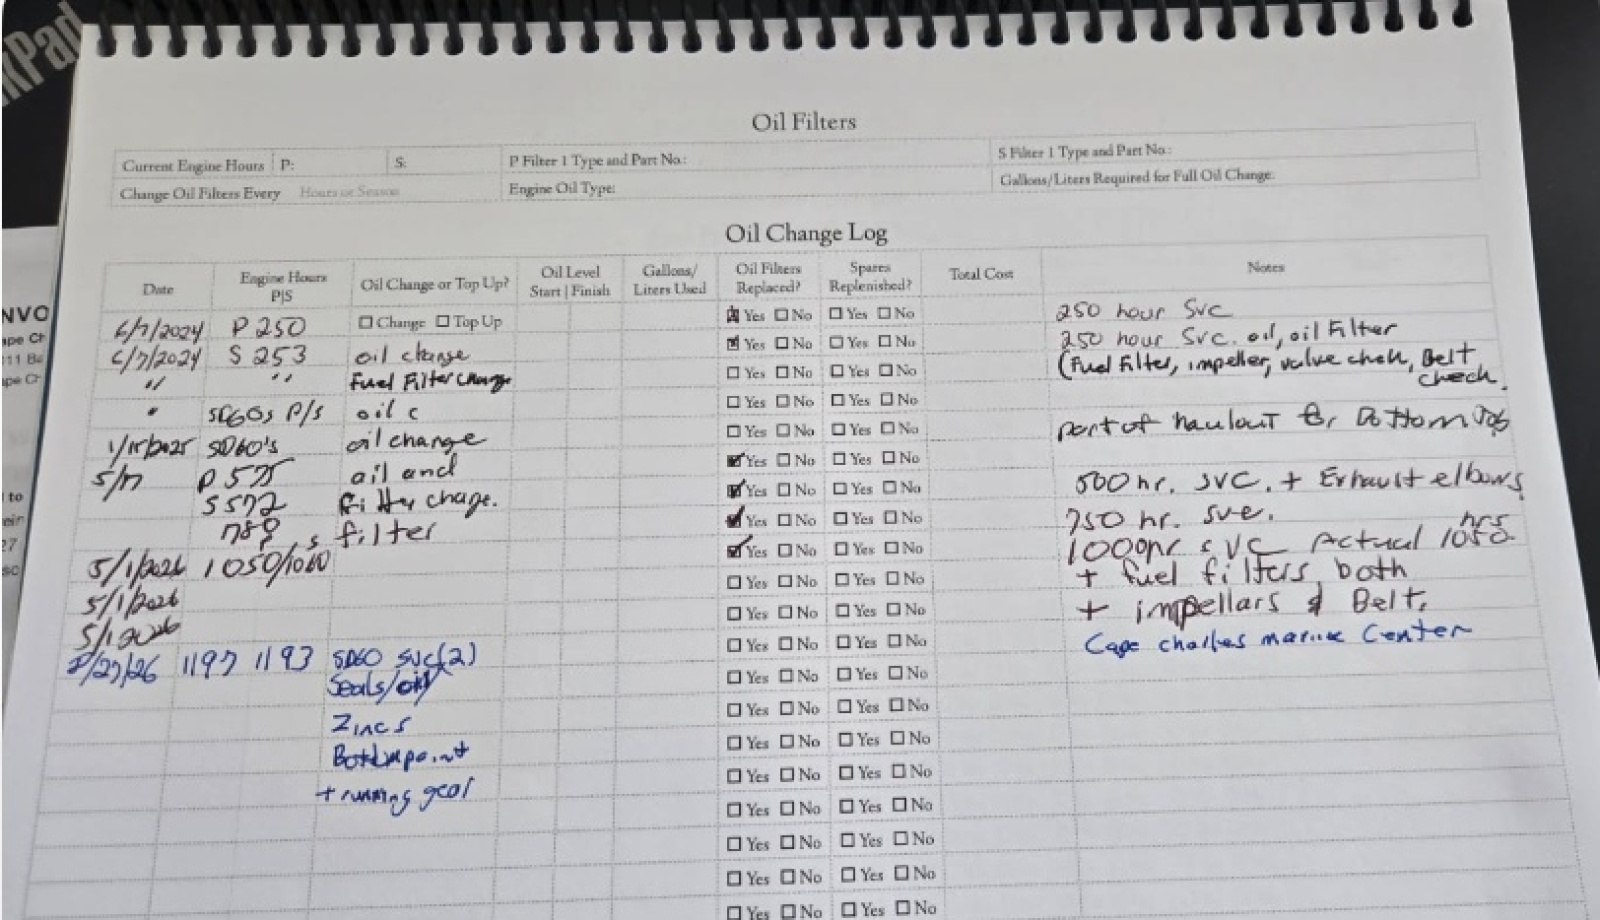 Oil Filters
Current Engine Hours P: S: P Filter 1 Type and Part No.: S Filter 1 Type and Part No.:
Change Oil Filters Every Hours or Season Engine Oil Type: Gallons/Liters Required for Full Oil Change:
Oil Change Log
Date Engine Hours P|S Oil Change or Top Up? Oil Level Start | Finish Gallons/ Liters Used Oil Filters Replaced? Spares Replenished? Total Cost Notes
6/7/2024 P 250 ☐ Change ☐ Top Up ☒ Yes ☐ No ☐ Yes ☐ No 250 hour Svc
6/7/2024 S 253 oil change ☒ Yes ☐ No ☐ Yes ☐ No 250 hour Svc. oil, oil Filter
" " Fuel Filter change ☐ Yes ☐ No ☐ Yes ☐ No (Fuel Filter, impeller, valve chek, Belt check.
" SD60s P/S oil c ☐ Yes ☐ No ☐ Yes ☐ No
1/15/2025 SD60's oil change ☐ Yes ☐ No ☐ Yes ☐ No part of haulout for Bottom Job
5/17 P 575 oil and ☑ Yes ☐ No ☐ Yes ☐ No
S 572 filter change. ☑ Yes ☐ No ☐ Yes ☐ No 500 hr. SVC. + Exhaust elbows
789 filter ☑ Yes ☐ No ☐ Yes ☐ No 750 hr. sve.
5/1/2026 1050/1060 ☑ Yes ☐ No ☐ Yes ☐ No 1000hr SVC Actual 1050 hrs
5/1/2026 ☐ Yes ☐ No ☐ Yes ☐ No + fuel filters both
5/1/2026 ☐ Yes ☐ No ☐ Yes ☐ No + impellars & Belt.
/27/26 1197 1193 SD60 SVC(2) ☐ Yes ☐ No ☐ Yes ☐ No Cape charles marine Center
Seals/oil/ ☐ Yes ☐ No ☐ Yes ☐ No
Zincs ☐ Yes ☐ No ☐ Yes ☐ No
Bottmpaint ☐ Yes ☐ No ☐ Yes ☐ No
+ running gear ☐ Yes ☐ No ☐ Yes ☐ No
☐ Yes ☐ No ☐ Yes ☐ No
☐ Yes ☐ No ☐ Yes ☐ No
☐ Yes ☐ No ☐ Yes ☐ No
☐ Yes ☐ No ☐ Yes ☐ No